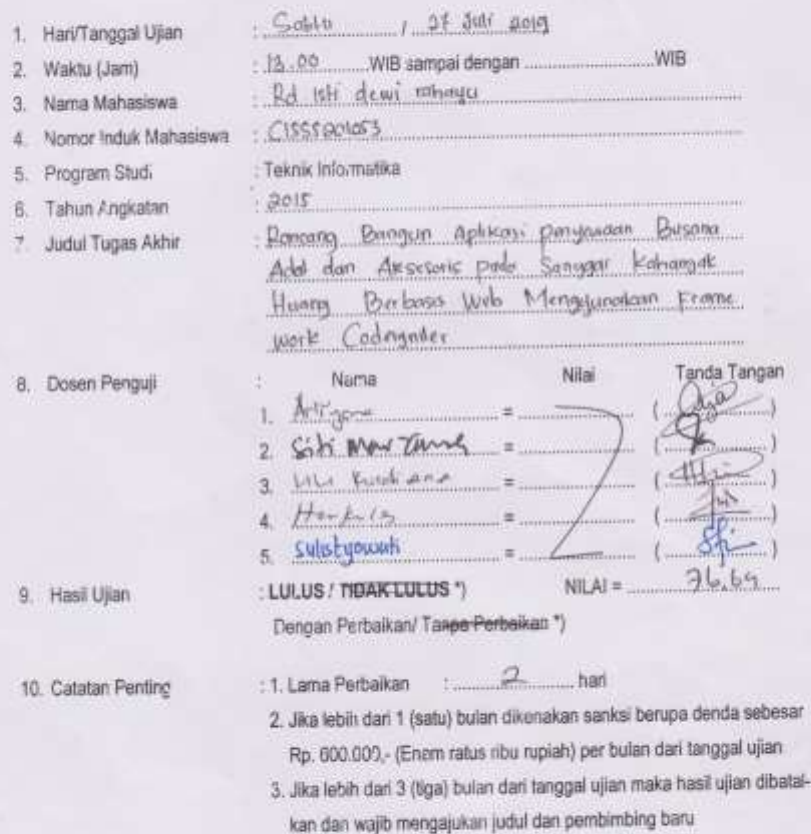 1. Hari/Tanggal Ujian : Sabtu / 27 Juli 2019
2. Waktu (Jam) : 13.00 WIB sampai dengan WIB
3. Nama Mahasiswa : Rd Isti dewi rahayu
4. Nomor Induk Mahasiswa : C1555201053
5. Program Studi : Teknik Informatika
6. Tahun Angkatan : 2015
7. Judul Tugas Akhir : Rancang Bangun Aplikasi penyewaan Busana
Adat dan Aksesoris pada Sanggar Kahangak
Huang Berbasis Web Menggunakan Frame
work
8. Dosen Penguji : Nama Nilai Tanda Tangan
1. = ( )
2. Siti = ( )
3. = ( )
4. = ( )
5. Sulistyowati = ( )
9. Hasil Ujian : LULUS / TIDAK LULUS *) NILAI = 76,69
Dengan Perbaikan/ Tanpa Perbaikan *)
10. Catatan Penting : 1. Lama Perbaikan : 2 hari
2. Jika lebih dari 1 (satu) bulan dikenakan sanksi berupa denda sebesar
Rp. 600.000,- (Enam ratus ribu rupiah) per bulan dari tanggal ujian
3. Jika lebih dari 3 (tiga) bulan dari tanggal ujian maka hasil ujian dibatal-
kan dan wajib mengajukan judul dan pembimbing baru